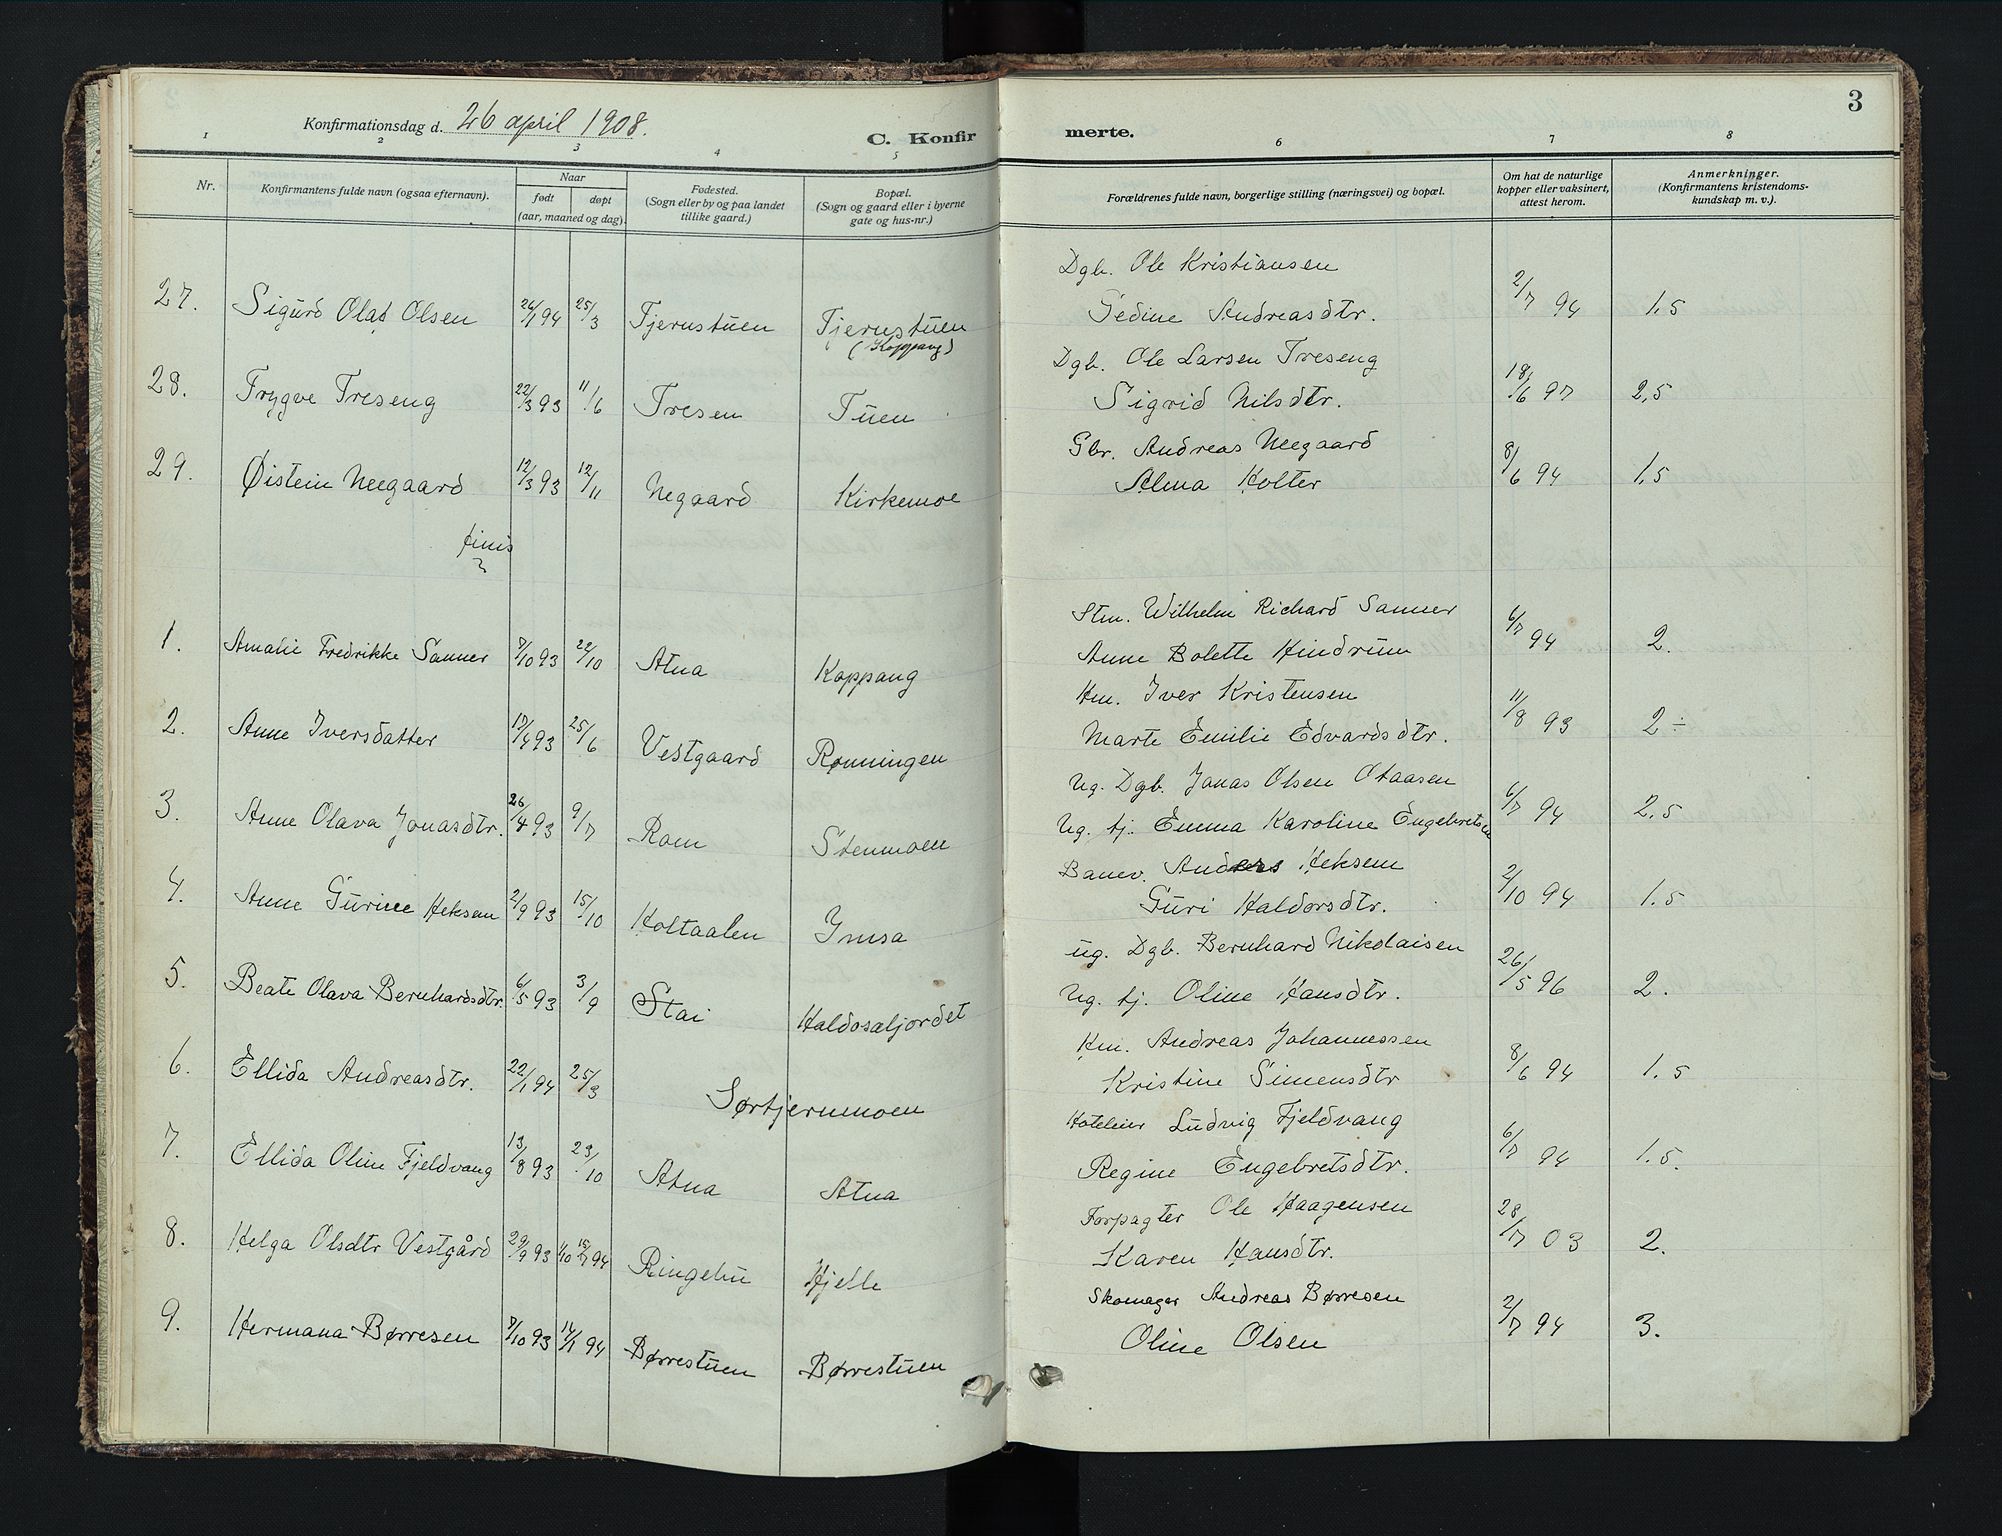 3
Konfirmationsdag d. 26 april 1908.
C. Konfirmerte.
1 2 3 4 5 6 7 8
Nr.
Konfirmantens fulde navn (ogsaa efternavn).
Naar
født døpt
(aar, maaned og dag).
Fødested.
(Sogn eller by og paa landet
tillike gaard.)
Bopæl.
(Sogn og gaard eller i byerne
gate og hus-nr.)
Forældrenes fulde navn, borgerlige stilling (næringsvei) og bopæl.
Om hat de naturlige
kopper eller vaksinert,
attest herom.
Anmerkninger.
(Konfirmantens kristendoms-
kundskap m. v.).
Dgb. Ole Kristiansen
27. Sigurd Olaf Olsen 24/1 94 25/3 Tjernstuen Tjernstuen Gedine Andreasdtr. 2/7 94 1,5
(Koppang)
Dgb. Ole Larsen Treseng
28. Trygve Treseng 22/3 93 11/6 Tresen Tuen Sigrid Nilsdtr. 18/6 97 2,5
Gbr. Andreas Neegaard
29. Øistein Neegaard 12/3 93 12/11 Negaard Kirkemoe Alma Holter 8/6 94 1,5
finis
Stm. Wilhelm Richard Sanner
1. Amalie Fredrikke Sanner 7/10 93 22/10 Atna Koppang Anne Bolette Hindrum 6/7 94 2.
Hm. Iver Kristensen
2. Anne Iversdatter 17/4 93 25/6 Vestgaard Rønningen Marte Emilie Edvardsdtr. 11/8 93 2 ÷
Ug. Dgb. Jonas Olsen Otaasen
3. Anne Olava Jonasdtr. 26/4 93 9/7 Rom Stenmoen Ug. tj. Emma Karoline Engebretsen 6/7 94 2,5
Banev. Anders Heksem
4. Anne Gurine Heksem 21/9 93 15/10 Holtaalen Imsa Guri Haldorsdtr. 2/10 94 1.5
ug. Dgb. Bernhard Nikolaisen
5. Beate Olava Bernhardsdtr. 6/5 93 3/9 Stai Haldosaljordet Ug. tj. Oline Hansdtr. 26/5 96 2.
Km. Andreas Johannessen
6. Ellida Andreasdtr. 22/1 94 25/3 Sørtjernmoen Kristine Simensdtr 8/6 94 1.5
Hoteleier Ludvig Fjeldvang
7. Ellida Oline Fjeldvang 13/8 93 23/10 Atna Atna Regine Engebretsdtr. 6/7 94 1.5.
Forpagter Ole Haagensen
8. Helga Olsdtr Vestgård 29/9 93 1/10 15/7 94 Ringebu Hjelle Karen Hansdtr. 28/7 03 2.
Skomager Andreas Børresen
9. Hermana Børresen 7/10 93 14/1 94 Børrestuen Børrestuen Oline Olsen 2/7 94 3.